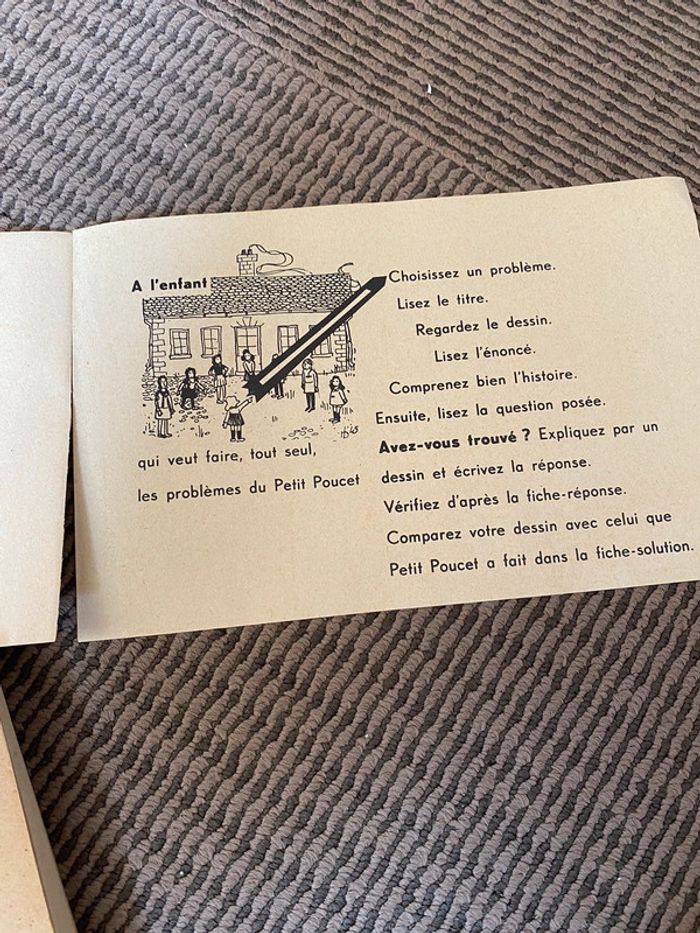 A l'enfant
qui veut faire, tout seul,
les problèmes du Petit Poucet
Choisissez un problème.
Lisez le titre.
Regardez le dessin.
Lisez l'énoncé.
Comprenez bien l'histoire.
Ensuite, lisez la question posée.
Avez-vous trouvé ? Expliquez par un
dessin et écrivez la réponse.
Vérifiez d'après la fiche-réponse.
Comparez votre dessin avec celui que
Petit Poucet a fait dans la fiche-solution.